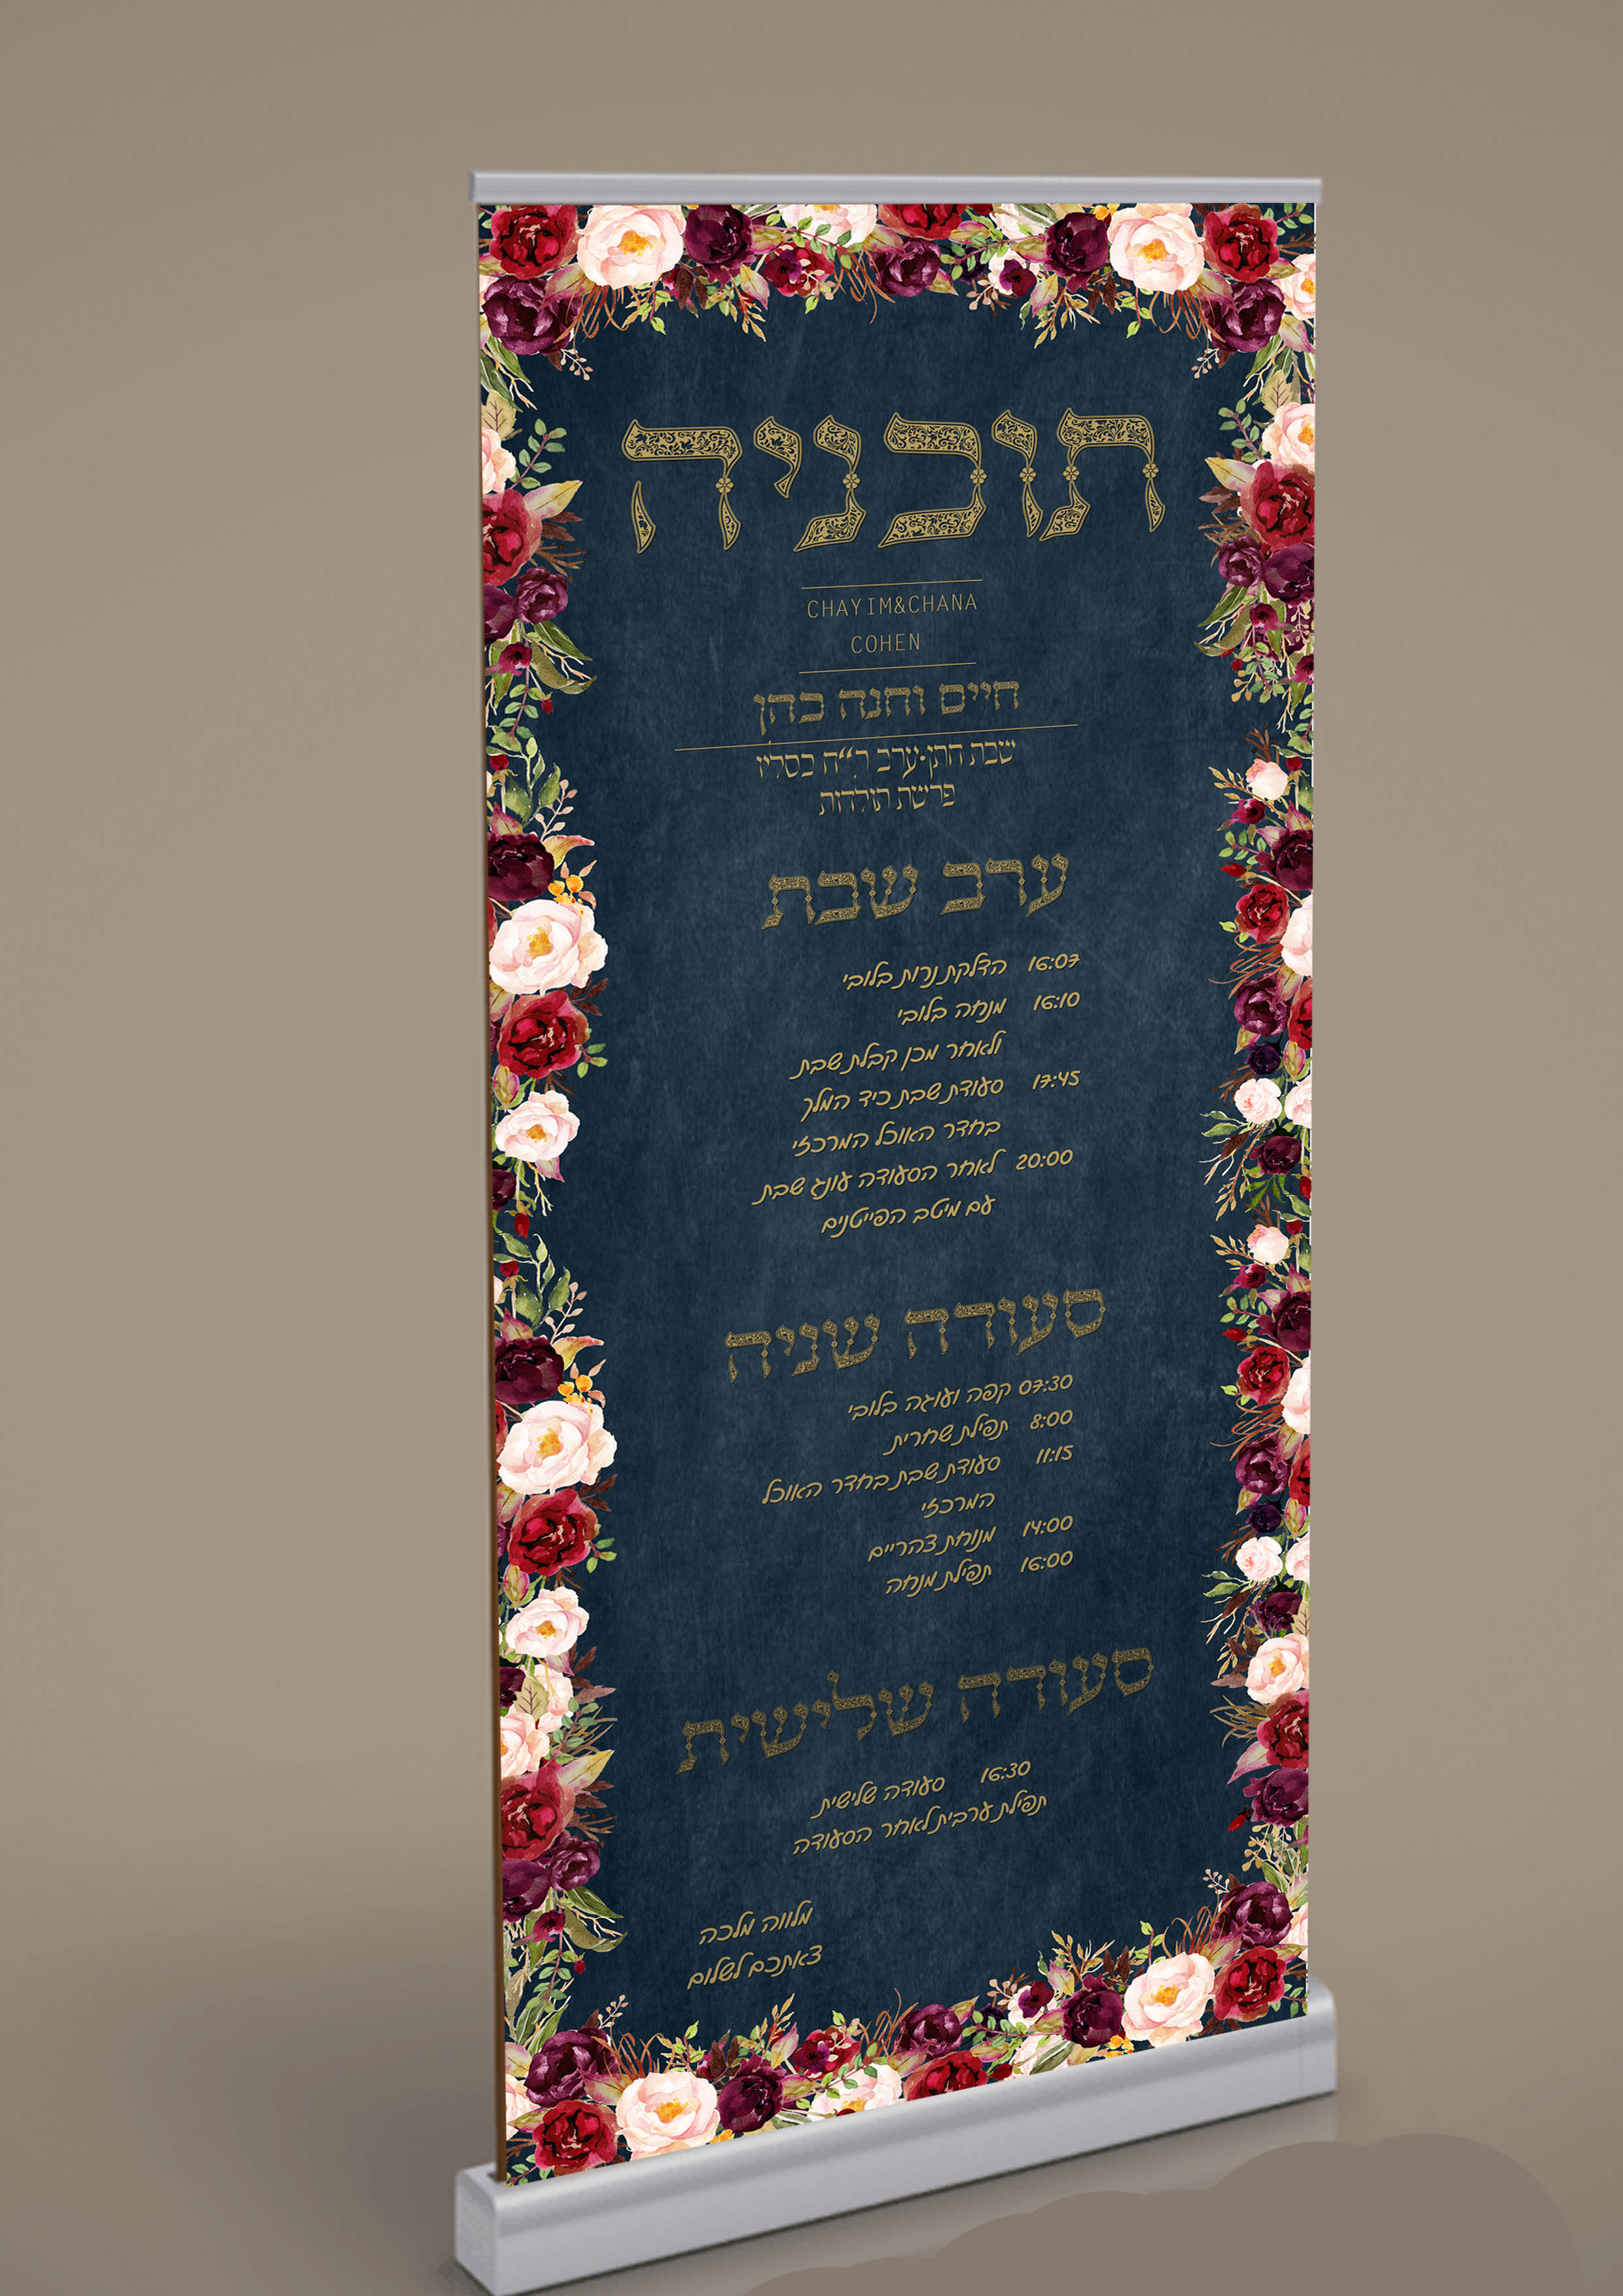 תוכניה
CHAYIM&CHANA
COHEN
חיים וחנה כהן
שבת חתן•ערב ר״ח כסליו
פרשת תולדות
ערב שבת
16:07 הדלקת נרות בלובי
16:10 מנחה בלובי
ולאחר מכן קבלת שבת
17:45 סעודת שבת כיד המלך
בחדר האוכל המרכזי
20:00 לאחר הסעודה עונג שבת
עם מיטב הפייטנים
סעודה שניה
07:30 קפה ועוגה בלובי
8:00 תפילת שחרית
11:15 סעודת שבת בחדר האוכל
המרכזי
14:00 מנוחת צהריים
16:00 תפילת מנחה
סעודה שלישית
16:30 סעודה שלישית
תפילת ערבית לאחר הסעודה
מלווה מלכה
צאתכם לשלום